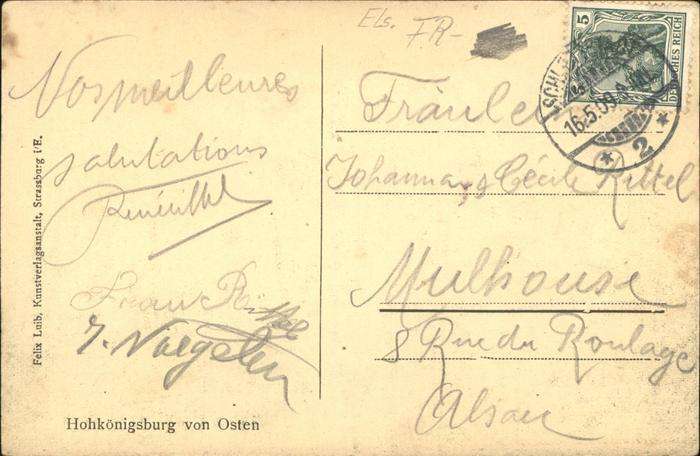 Els. FR-
Vos meilleures
salutations
Frau Rittel
J. Naegelen
Felix Luib, Kunstverlagsanstalt, Strassburg i/E.
Hohkönigsburg von Osten
5
DEUTSCHES REICH
16.5.09
* 2 *
Fräulein
Johanna & Cécile Rittel
Mulhouse
8 Rue du Roulage
Alsace